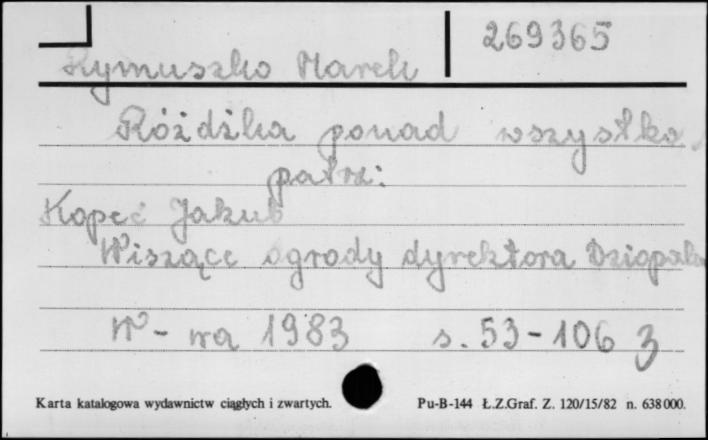 269365
Rymuszko Marek
Różdżka ponad wszystko.
patrz:
Kopeć Jakub
Wiszące ogrody dyrektora Dziopaka
W-wa 1983 s. 53-106 z
Karta katalogowa wydawnictw ciągłych i zwartych. Pu-B-144 Ł.Z.Graf. Z. 120/15/82 n. 638000.